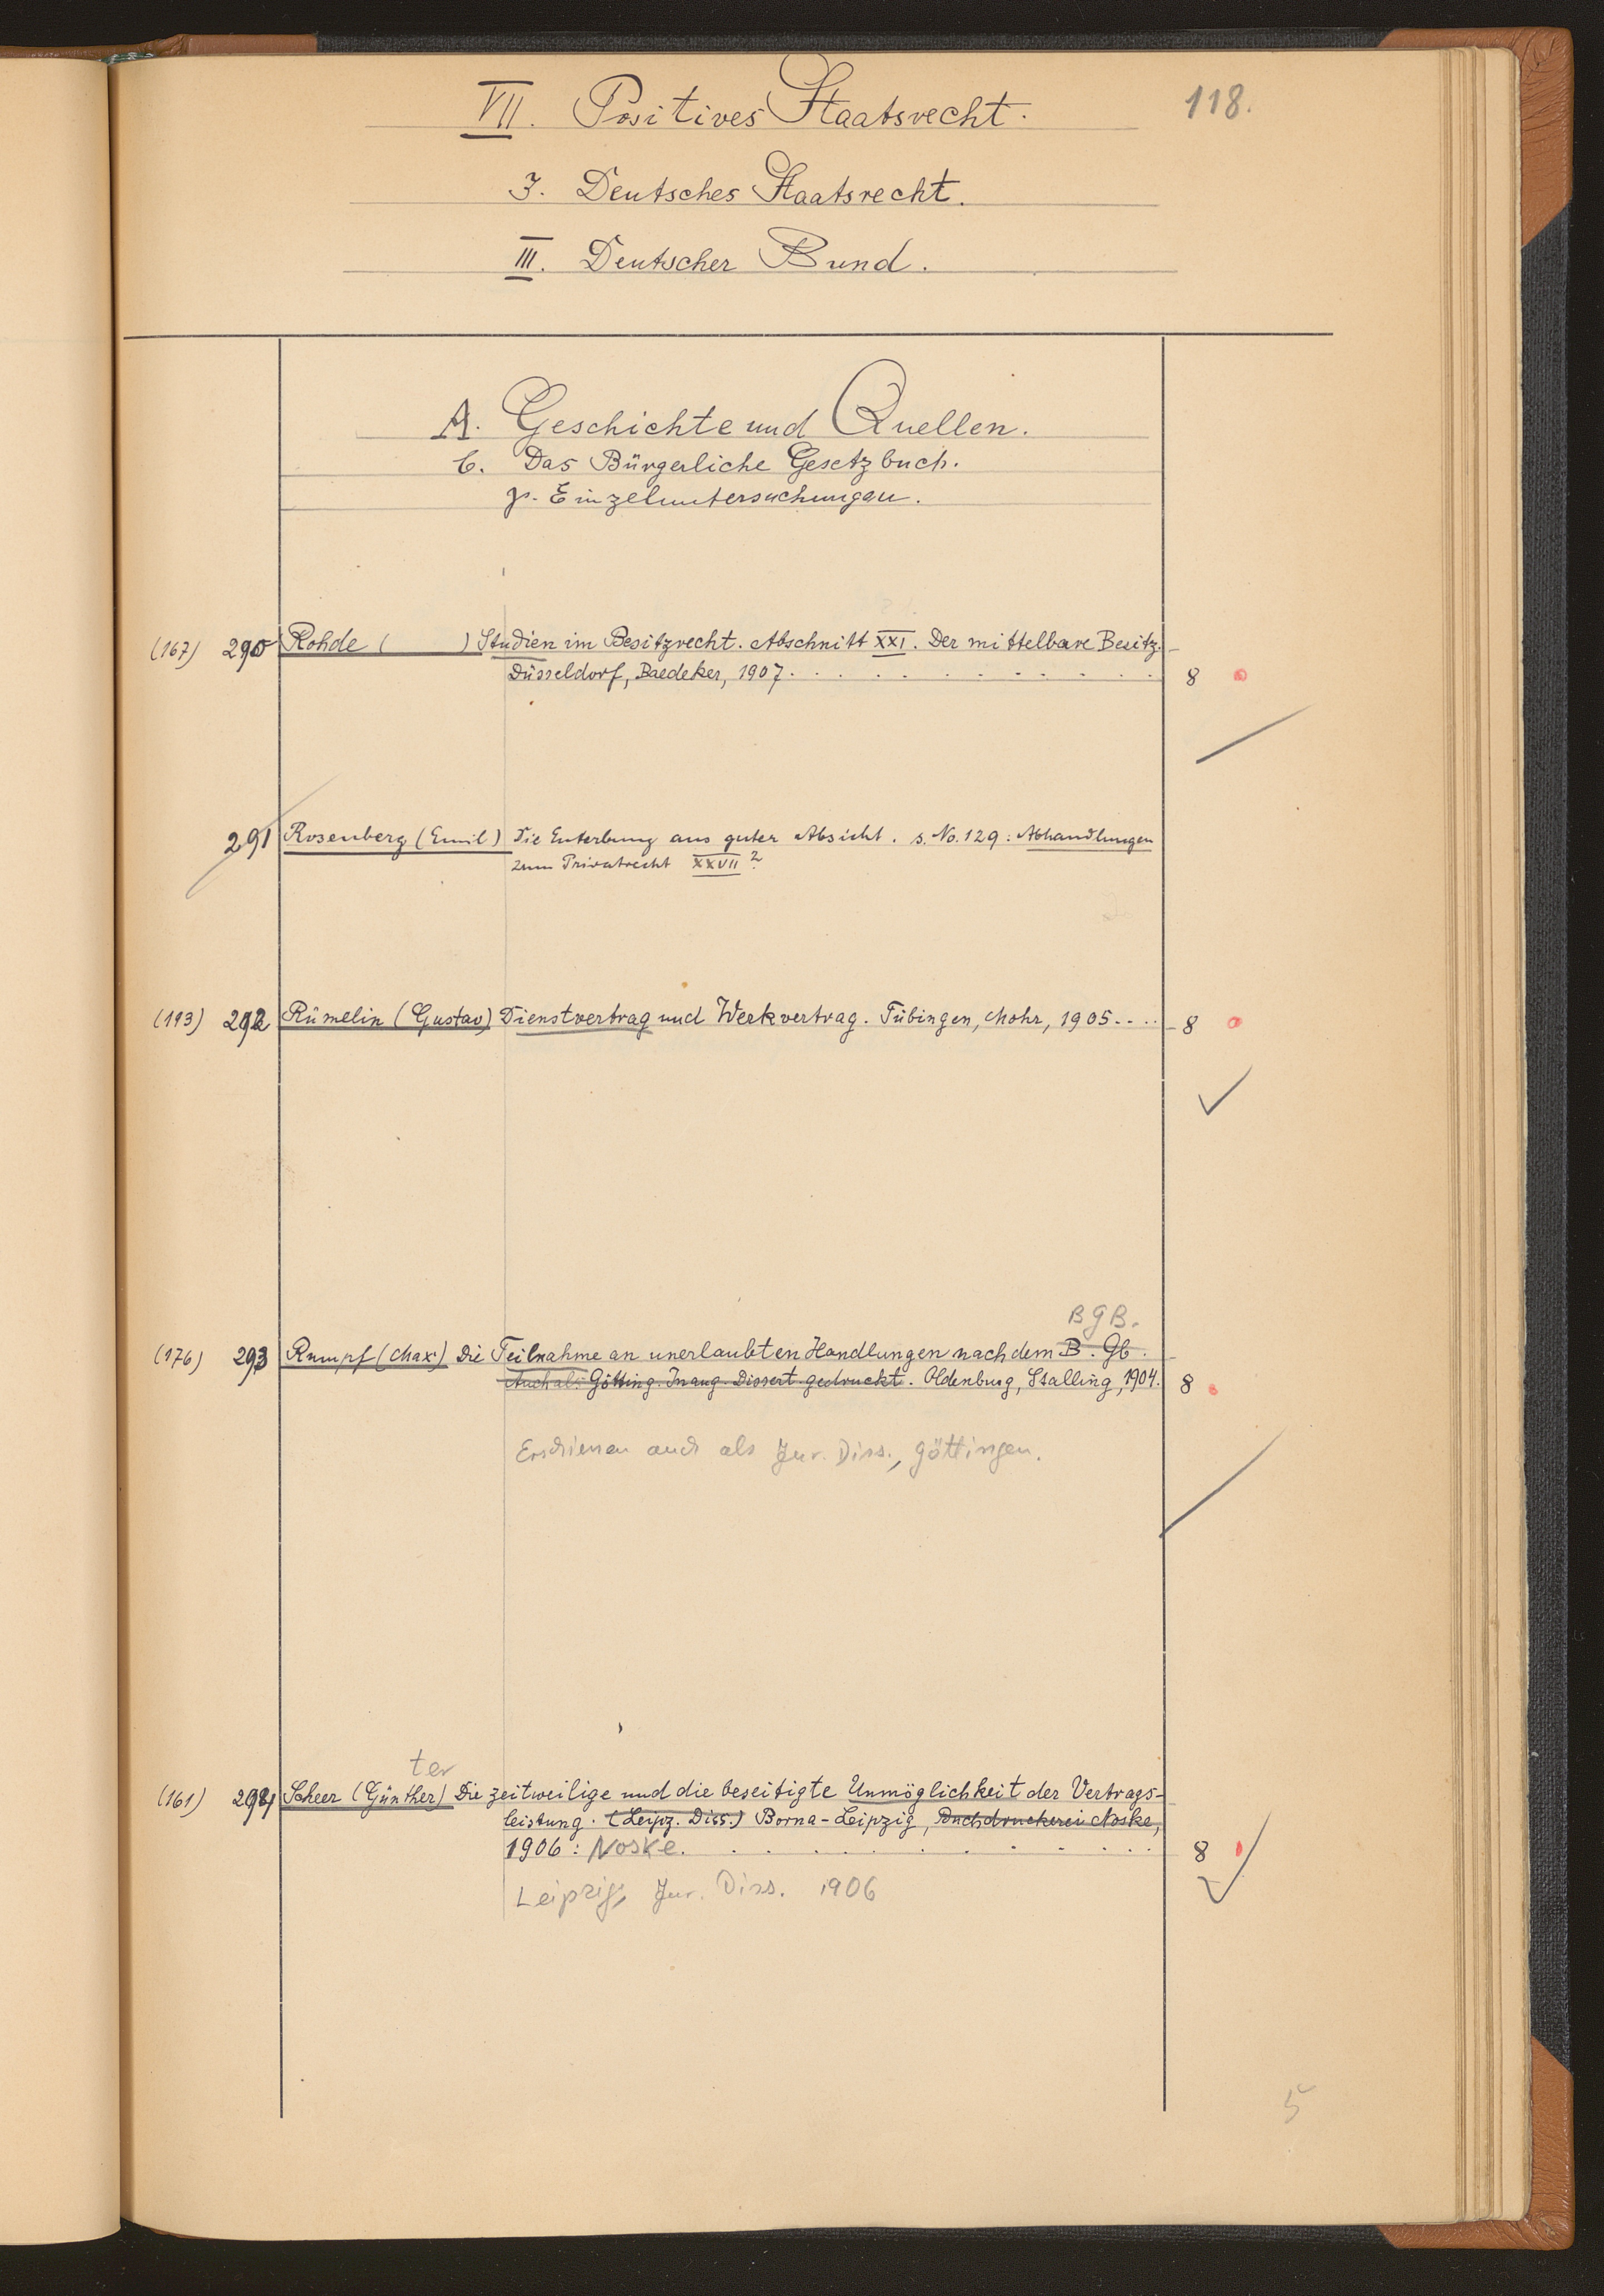 VII. Positives Staatsrecht. 118.
3. Deutsches Staatsrecht.
III. Deutscher Bund.
A. Geschichte und Quellen.
b. Das Bürgerliche Gesetzbuch.
γ. Einzeluntersuchungen.
(167) 290 Rohde ( ) Studien im Besitzrecht. Abschnitt XXI. Der mittelbare Besitz.
Düsseldorf, Baedeker, 1907. 8
291 Rosenberg (Emil) Die Enterbung aus guter Absicht. s. No. 129: Abhandlungen
zum Privatrecht XXVII 2
(193) 292 Rümelin (Gustav) Dienstvertrag und Werkvertrag. Tübingen, Mohr, 1905.... 8
BGB.
(176) 293 Rumpf (Max) Die Teilnahme an unerlaubten Handlungen nach dem B. Gb.
Auch als Götting. Inaug. Dissert. gedruckt. Oldenburg, Stalling, 1904. 8
Erschienen auch als Jur. Diss., Göttingen.
ter
(161) 294 Scheer (Günther) Die zeitweilige und die beseitigte Unmöglichkeit der Vertrags-
leistung. (Leipz. Diss.) Borna-Leipzig, Buchdruckerei Noske,
1906: Noske. 8
Leipzig, Jur. Diss. 1906
5